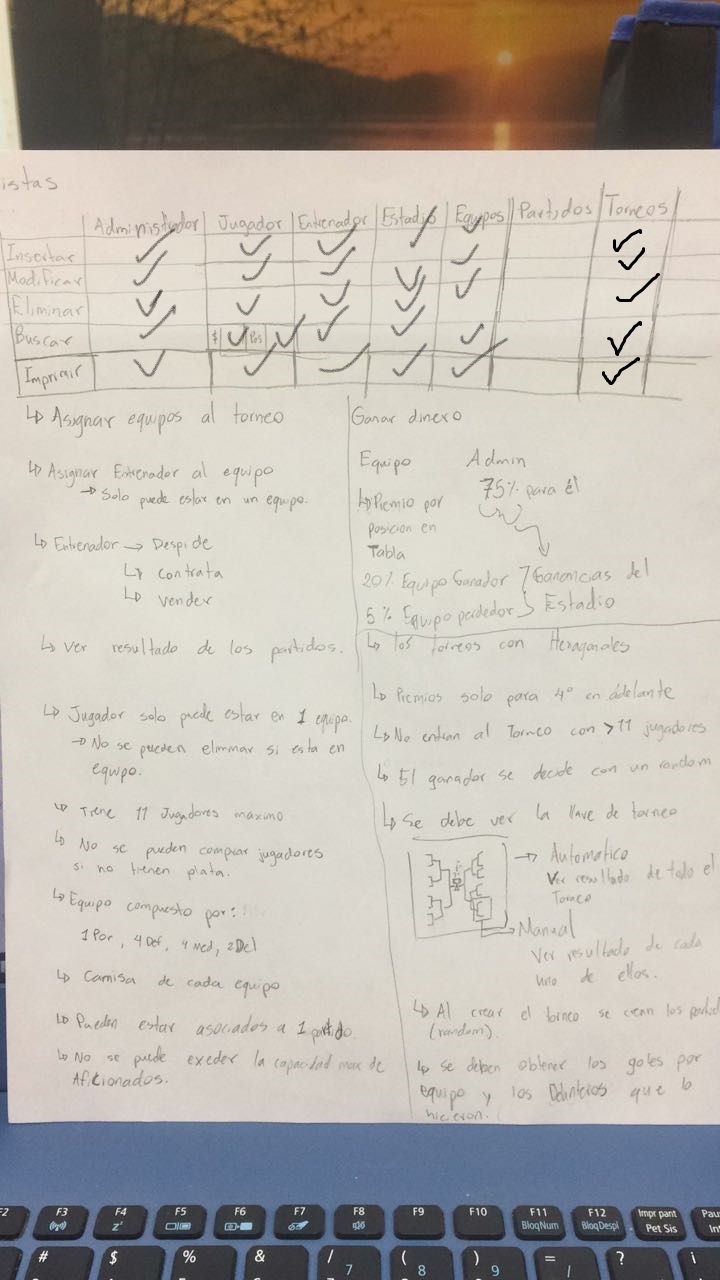 istas
Administrador Jugador Entrenador Estadio Equipos Partidos Torneos
Insertar
Modificar
Eliminar
Buscar $ Pos
Imprimir
↳ Asignar equipos al torneo
↳ Asignar Entrenador al equipo
→ Solo puede estar en un equipo.
↳ Entrenador → Despide
↳ contrata
↳ vender
↳ Ver resultado de los partidos.
↳ Jugador solo puede estar en 1 equipo.
→ No se pueden eliminar si esta en
equipo.
↳ Tiene 11 Jugadores maximo
↳ No se pueden comprar jugadores
si no tienen plata.
↳ Equipo compuesto por:
1 Por, 4 Def, 4 Med, 2 Del
↳ Camisa de cada equipo
↳ Pueden estar asociados a 1 partido.
↳ No se puede exeder la capacidad max de
Aficionados.
Ganar dinero
Equipo Admin
↳ Premio por 75% para él
posicion en
Tabla
20% Equipo Ganador Ganancias del
5% Equipo perdedor Estadio
↳ los torneos con Hexagonales
↳ Premios solo para 4º en adelante
↳ No entran al Torneo con >11 jugadores
↳ El ganador se decide con un random
↳ Se debe ver la llave de torneo
→ Automatico
Ver resultado de todo el
Torneo
→ Manual
Ver resultado de cada
uno de ellos.
↳ Al crear el torneo se crean los partid
(random).
↳ se deben obtener los goles por
equipo y los Delanteros que lo
hicieron.
F2 F3 F4 F5 F6 F7 F8 F9 F10 F11 F12 Impr pant Pau
z BloqNum BloqDespl Pet Sis In
# $ % & / ( ) = ?
7 8 9 /